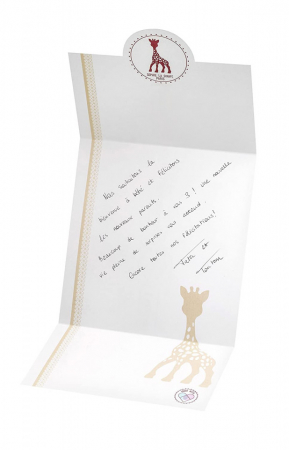 SOPHIE LA GIRAFE
PARIS
Nous souhaitons la
bienvenue à bébé et félicitons
les nouveaux parents.
Beaucoup de bonheur à vous 3 ! Une nouvelle
vie pleine de surprises vous attend
Encore toutes nos félicitations !
et